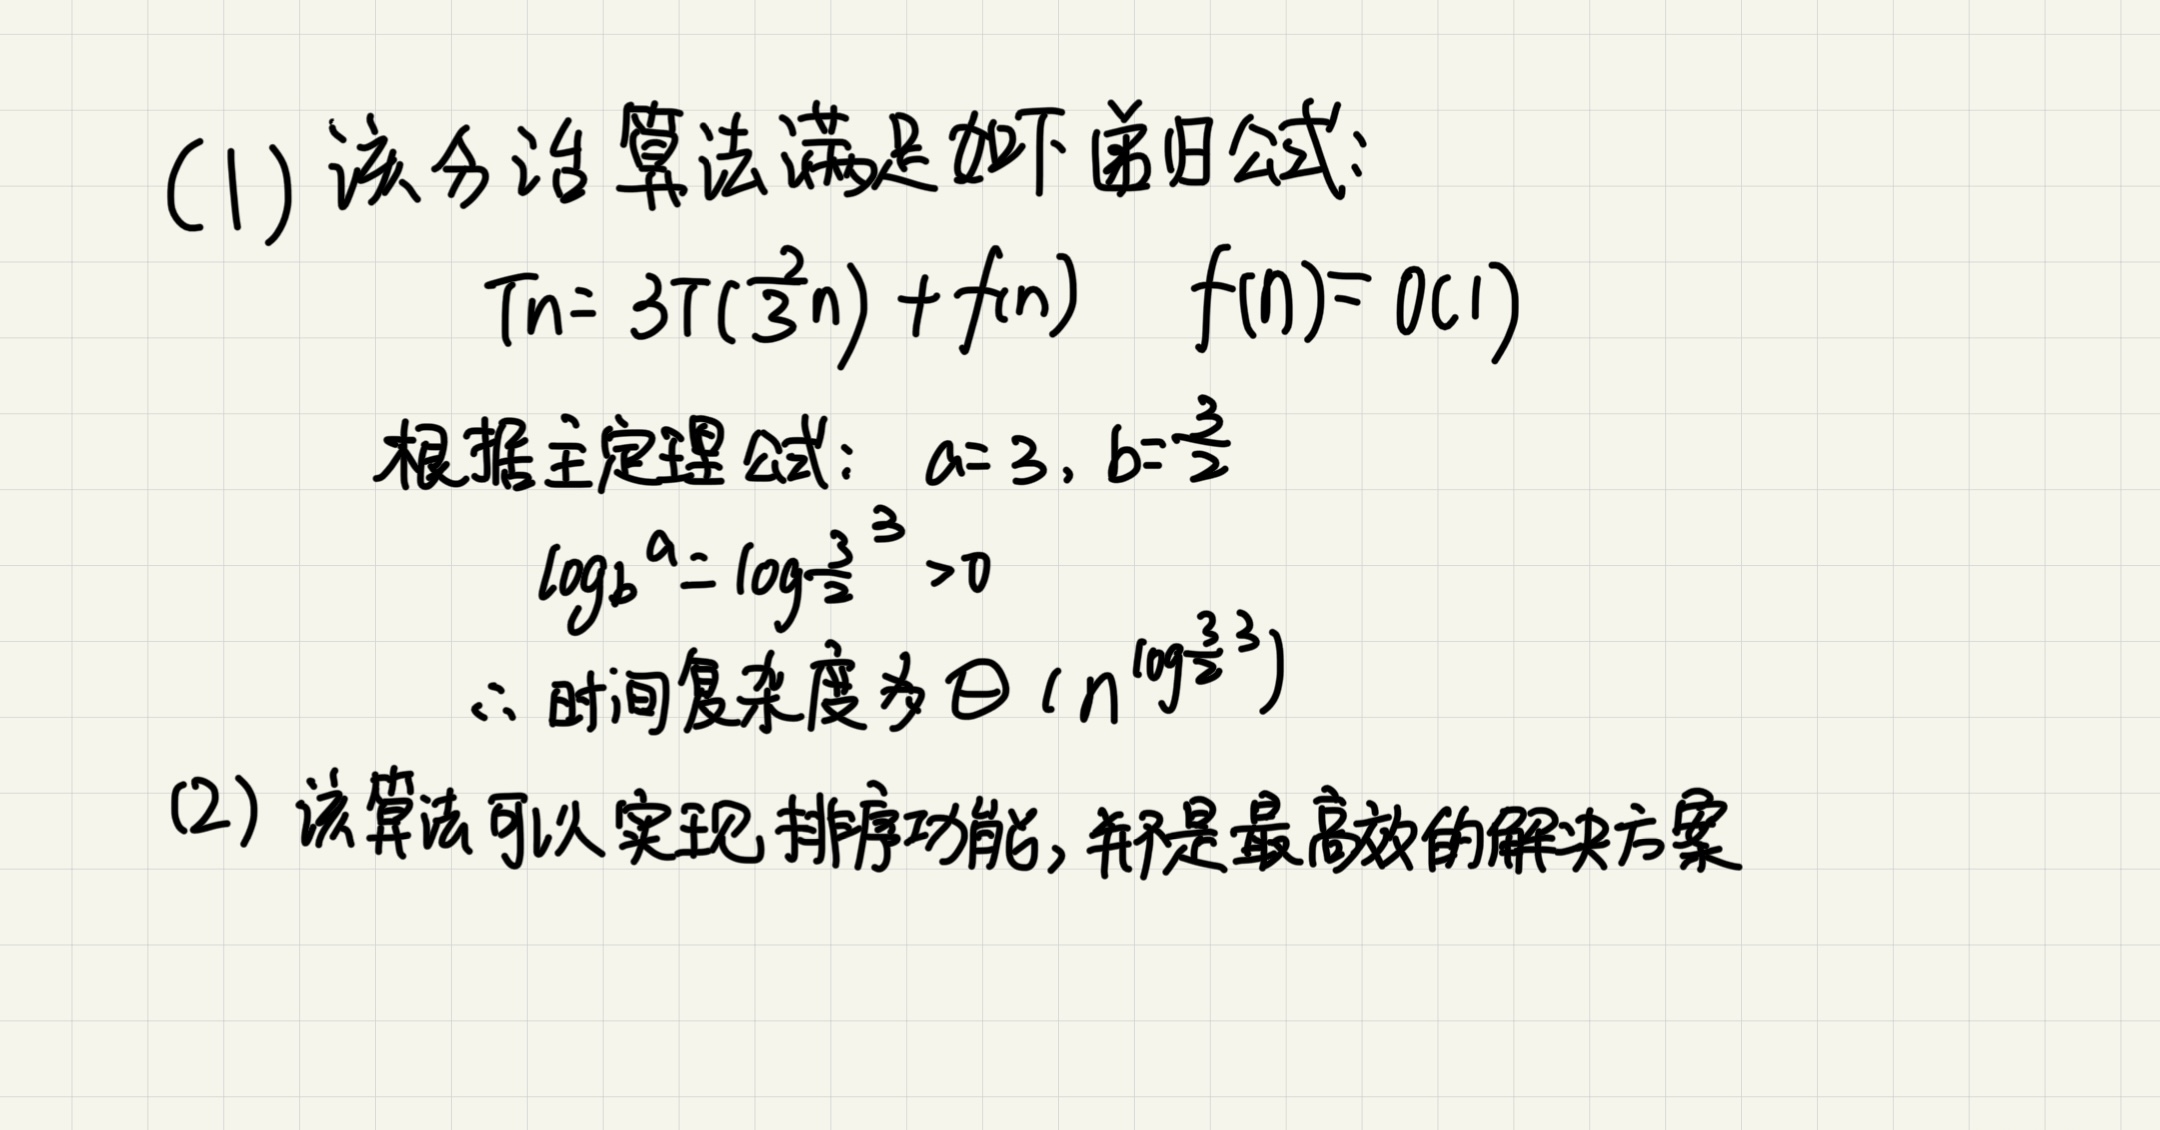 (1) 该分治算法满足如下递归公式:
Tn= 3T(2/3 n) + f(n) f(n)= O(1)
根据主定理公式: a=3, b=3/2
log_b^a = log_{3/2}^3 >0
∴ 时间复杂度为 Θ(n^{log_{3/2}^3})
(2) 该算法可以实现排序功能,并不是最高效的解决方案